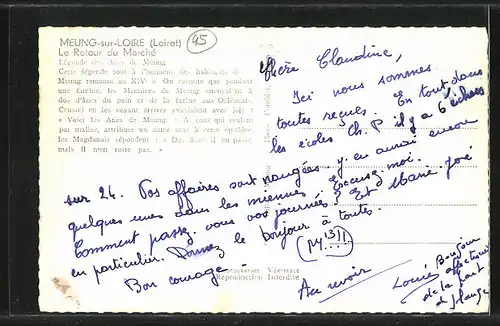 MEUNG-sur-LOIRE (Loiret)
Le Retour du Marché
45
Légende des Anes de Meung
Cette légende tout à l'honneur des habitants de
Meung remonte au XIVe « On raconte que pendant
une farine, les Meuniers de Meung envoyaient à
dos d'ânes du pain et de la farine aux Orléanais.
Ceux-ci en les voyant arriver s'écriaient avec joie :
« Voici les Anes de Meung ». A ceux qui veulent
par malice, attribuer un autre sens à cette épithète,
les Magdunais répondent : « Dos il en passe,
mais il n'en reste pas. »
Chère Claudine,
Ici nous sommes
toutes reçues. En tout dans
les écoles Ch. P il y a 6 échecs
sur 24. Vos affaires sont rangées. y en aurait encore
quelques unes dans les miennes. Excusez-moi.
Comment passez-vous vos journées? Et Marie José
en particulier. Donnez le bonjour à toutes.
Bon courage.
Au revoir
Louise
Bonjour
affectueux
de la part
de
PHOTOGRAPHIE VÉRITABLE
Reproduction Interdite